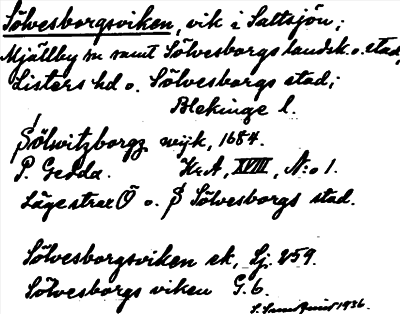 Sölvesborgsviken, vik i Saltsjön;
Mjällby sn samt Sölvesborgs landsk. o. stad,
Listers hd o. Sölvesborgs stad;
Blekinge l.
Sölwitzborgz wijk, 1684.
P. Gedda. KrA, XVIII, N:o 1.
Läge strax Ö o. S Sölvesborgs stad.
Sölvesborgsviken ek, Sj. 259.
Sölvesborgs viken G. 6.
1936.